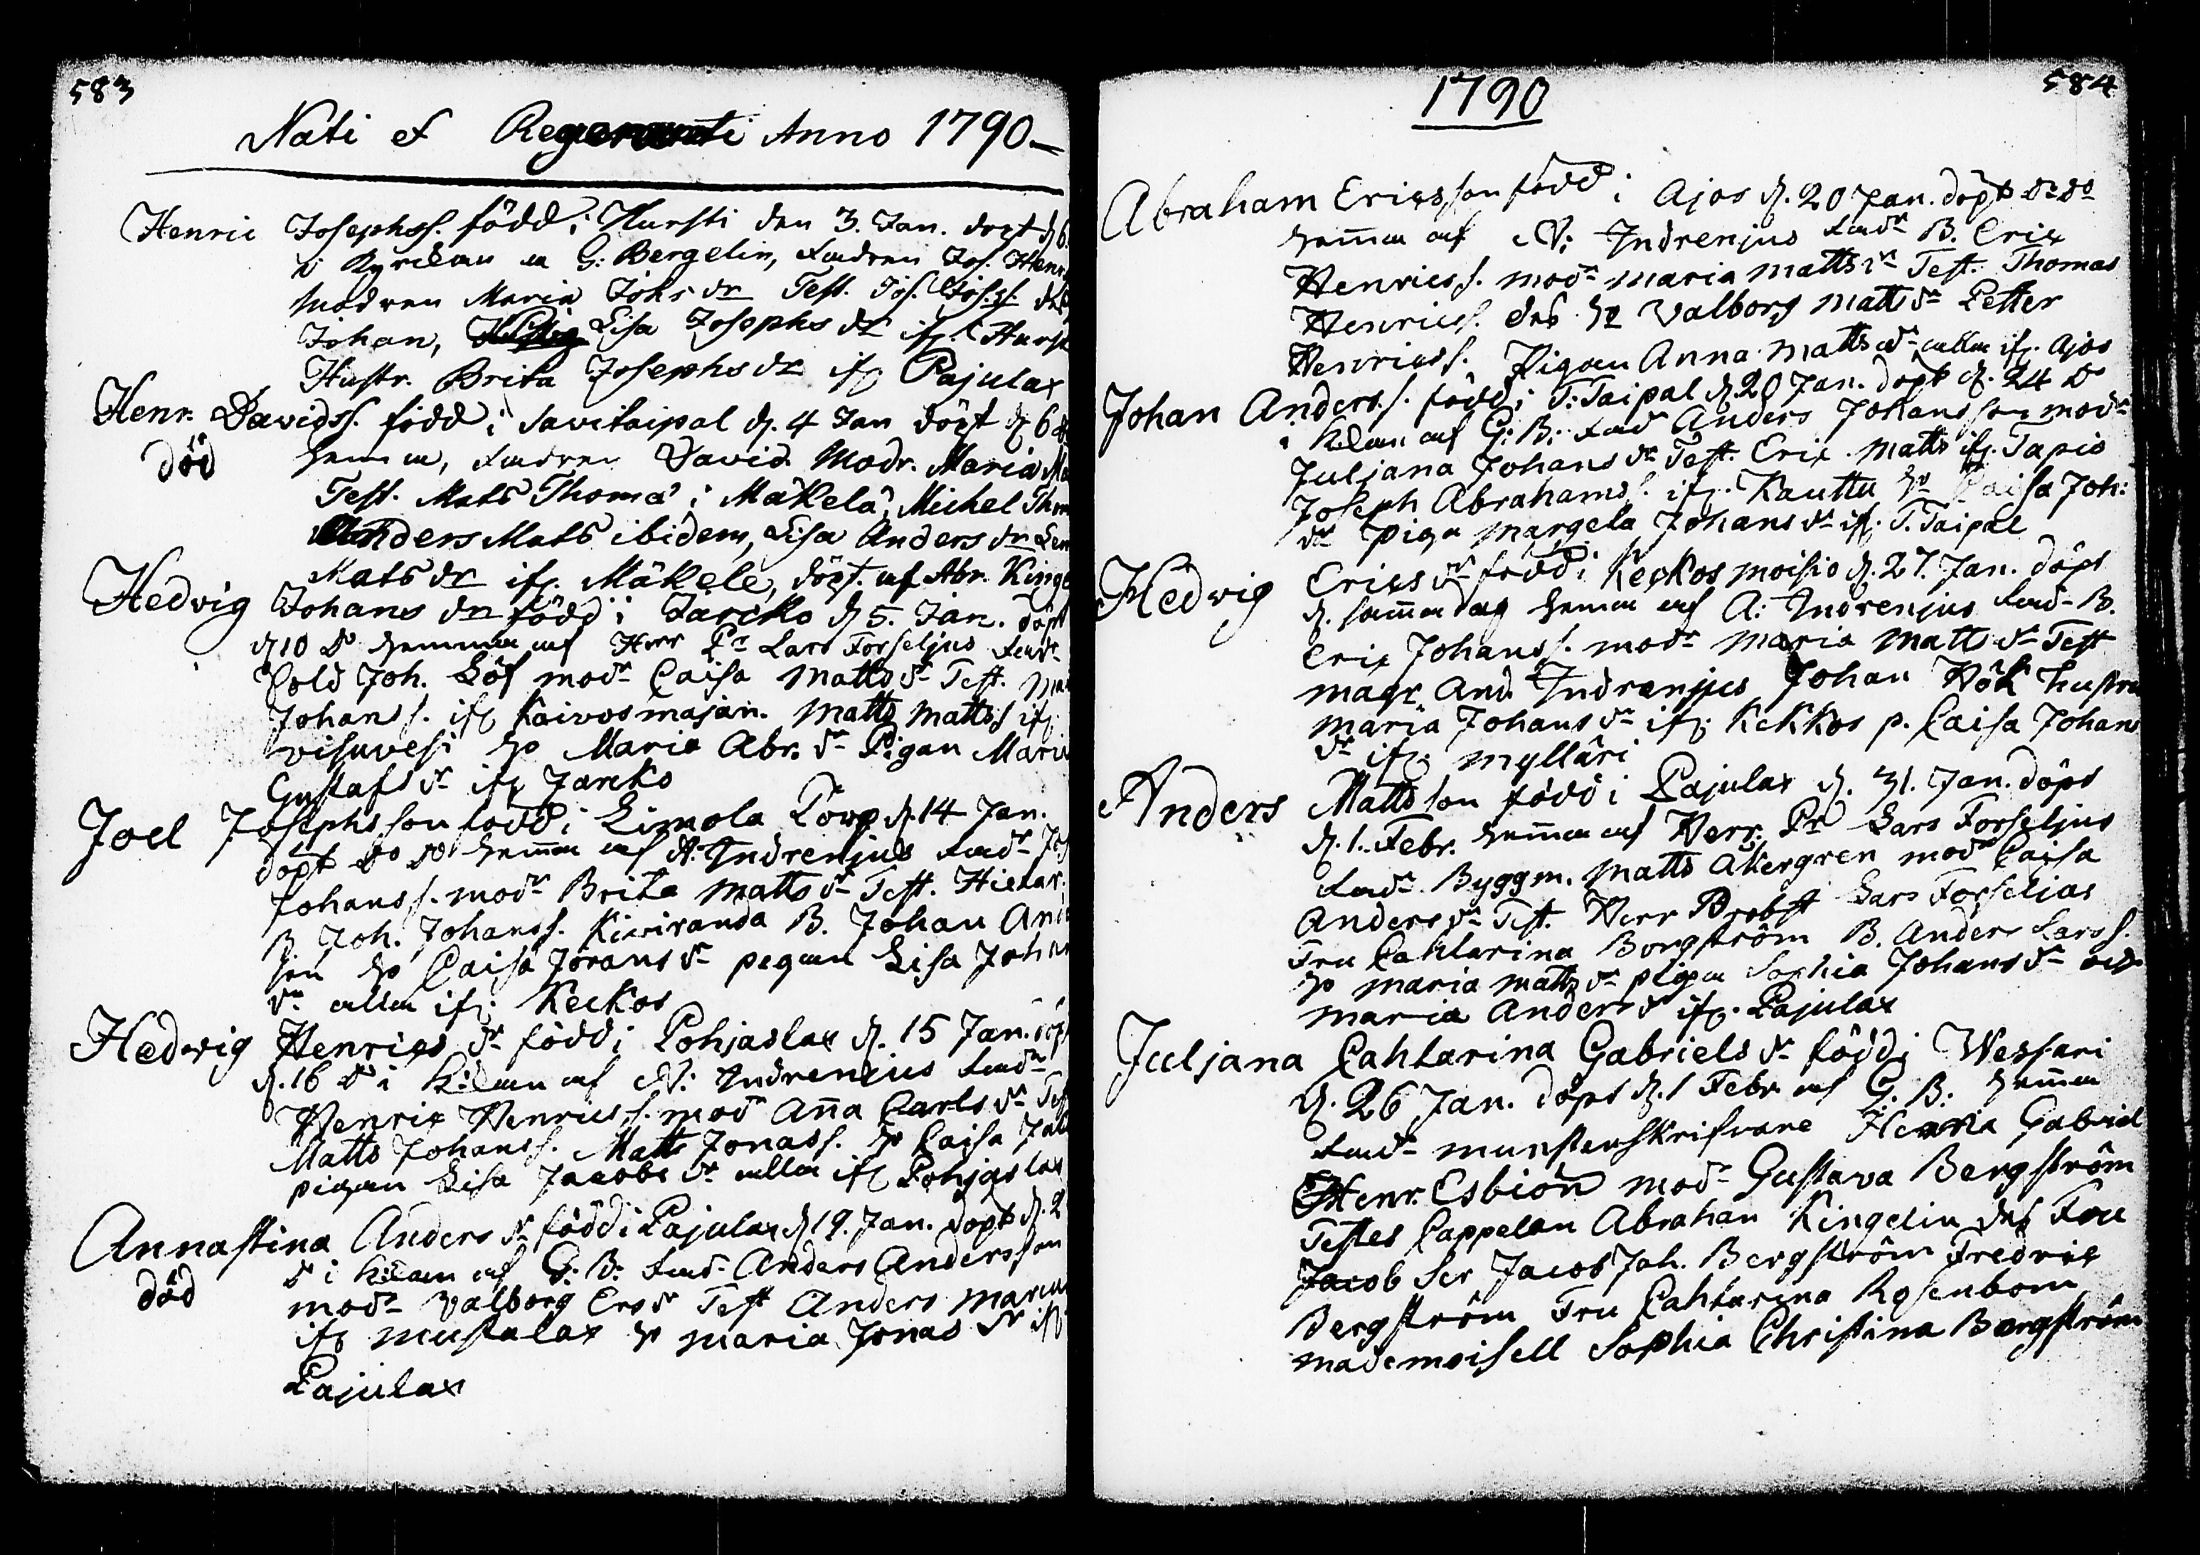 583
Nati et Regenerati Anno 1790
Henric Josephss. född i Hursti den 3. Jan. döpt d 6
i Kyrckan a G: Bergelin, fadren Jos. Henr
modren Maria Johs dr Test. Jos. Jos.s. dr
Johan, Lisa Josephs dr ifr. Hurst
Hustr. Brita Josephs dr ifr Pajulax
Henr. Davidss. född i Savitaipal d. 4 Jan döpt d 6
död
hemma, fadren David Modr. Maria Ma
Test. Mats Thomas i Mäkelä, Michel Thom
Anders Mats ibidem, Lisa Anders dr
Mats dr ifr. Mäkelä, döpt. af Abr. Kinge
Hedvig Johans dr född i Jarcko d 5. Jan. döpt
d 10 do hemma af Herr Pr Lars Forseljus fadr
Sold Joh. Löf modr Caisa Matts dr Test.
Johanss. ifr Kaivosmajan. Matts Mattss ifr
visuvesi H Maria Abr. dr Pigan Maria
Gustafs dr ifr Jarcko
Joel Josephsson född i Limola Torp d. 14 Jan.
döpt do do hemma af A: Indrenjus fadr Jos
Johanss. modr Brita Matts dr Test.
B. Joh. Johanss. Kixiranda B. Johan Ande
son H Caisa Jörans dr pegan Lisa Johan
dr alla ifr. Keckos
Hedvig Henrics dr född i Pohjaslax d. 15 Jan. döpt
d. 16 do i K:kan af A: Indrenius fadr
Henric Henricss. modr Anna Carls dr Test
Matts Johanss. Matts Jonass. H Caisa Jac
pigan Lisa Jacobs dr alla ifr Pohjaslax
Annastina Anders dr född i Pajulax d 19. Jan. döpt d. 2
död
do i K:kan af G: B: fad. Anders Andersson
modr Valborg Ers dr Test Anders
ifr mustalax H maria Jonas dr ifr
Pajulax
1790
584
Abraham Ericsson född i Ajos d. 20 Jan. döpt do do
hemma af A: Indrenjus fadr B. Eric
Henricss. modr maria matts dr Test. Thomas
Henricss. des H Valborg matts dr Petter
Henricss. Pigan Anna Matts dr alla ifr. Ajos
Johan Anderss. född i T: Taipal d. 20 Jan. döpt d. 24 do
i K:kan af G: B: fad Anders Johansson modr
Juljana Johans dr Test. Eric Matts ifr. Tapio
Joseph Abrahamss. ifr. Kauttu H Caisa Joh:
dr piga Margeta Johans dr ifr. T. Taipal
Hedvig Erics dr född i Keckos moisio d. 27. Jan. döpt
d. samma dag hemma af A: Indrenjus fad. B.
Eric Johanss. modr Maria Matts dr Test
magr. And. Indrenjus Johan Hök hustru
Maria Johans dr ifr. Kekkos p. Caisa Johans
dr ifr. mylläri
Anders Mattsson född i Pajulax d. 31. Jan. döpt
d. 1. Febr. hemma af Herr. Pr Lars Forseljus
fadr. Byggm. Matts Akergren modr Caisa
Anders dr Test. Herr Probst Lars Forselias
Fru Cahtarina Borgström B. Anders Larss.
H maria matts dr piga Sophia Johans dr och
maria Anders dr ifr. Pajulax
Juljana Cahtarina Gabriels dr född i Wessari
d. 26 Jan. döpt d. 1 Febr af G. B: hemma
fadr munsterskrifvare Gabriel
Henr. Esbiörn modr Gustava Bergström
Testes Cappelan Abraham Kingelin des Fru
Jacob Ser Jacob Joh. Bergström Fredric
Bergström Fru Cahtarina Rosenbom
mademoisell Sophia Christina Bergström